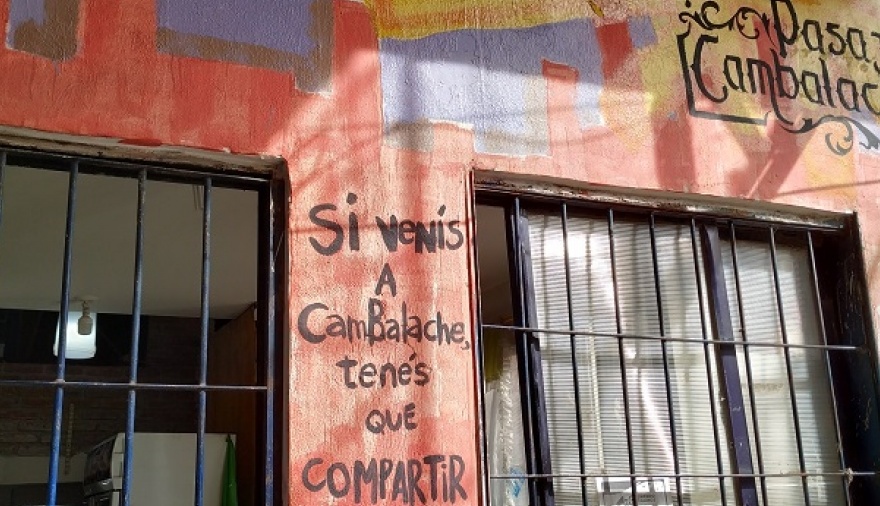 Pasaj
Cambalac
Si venís
A
CamBalache,
tenés
QUE
COMPARTIR